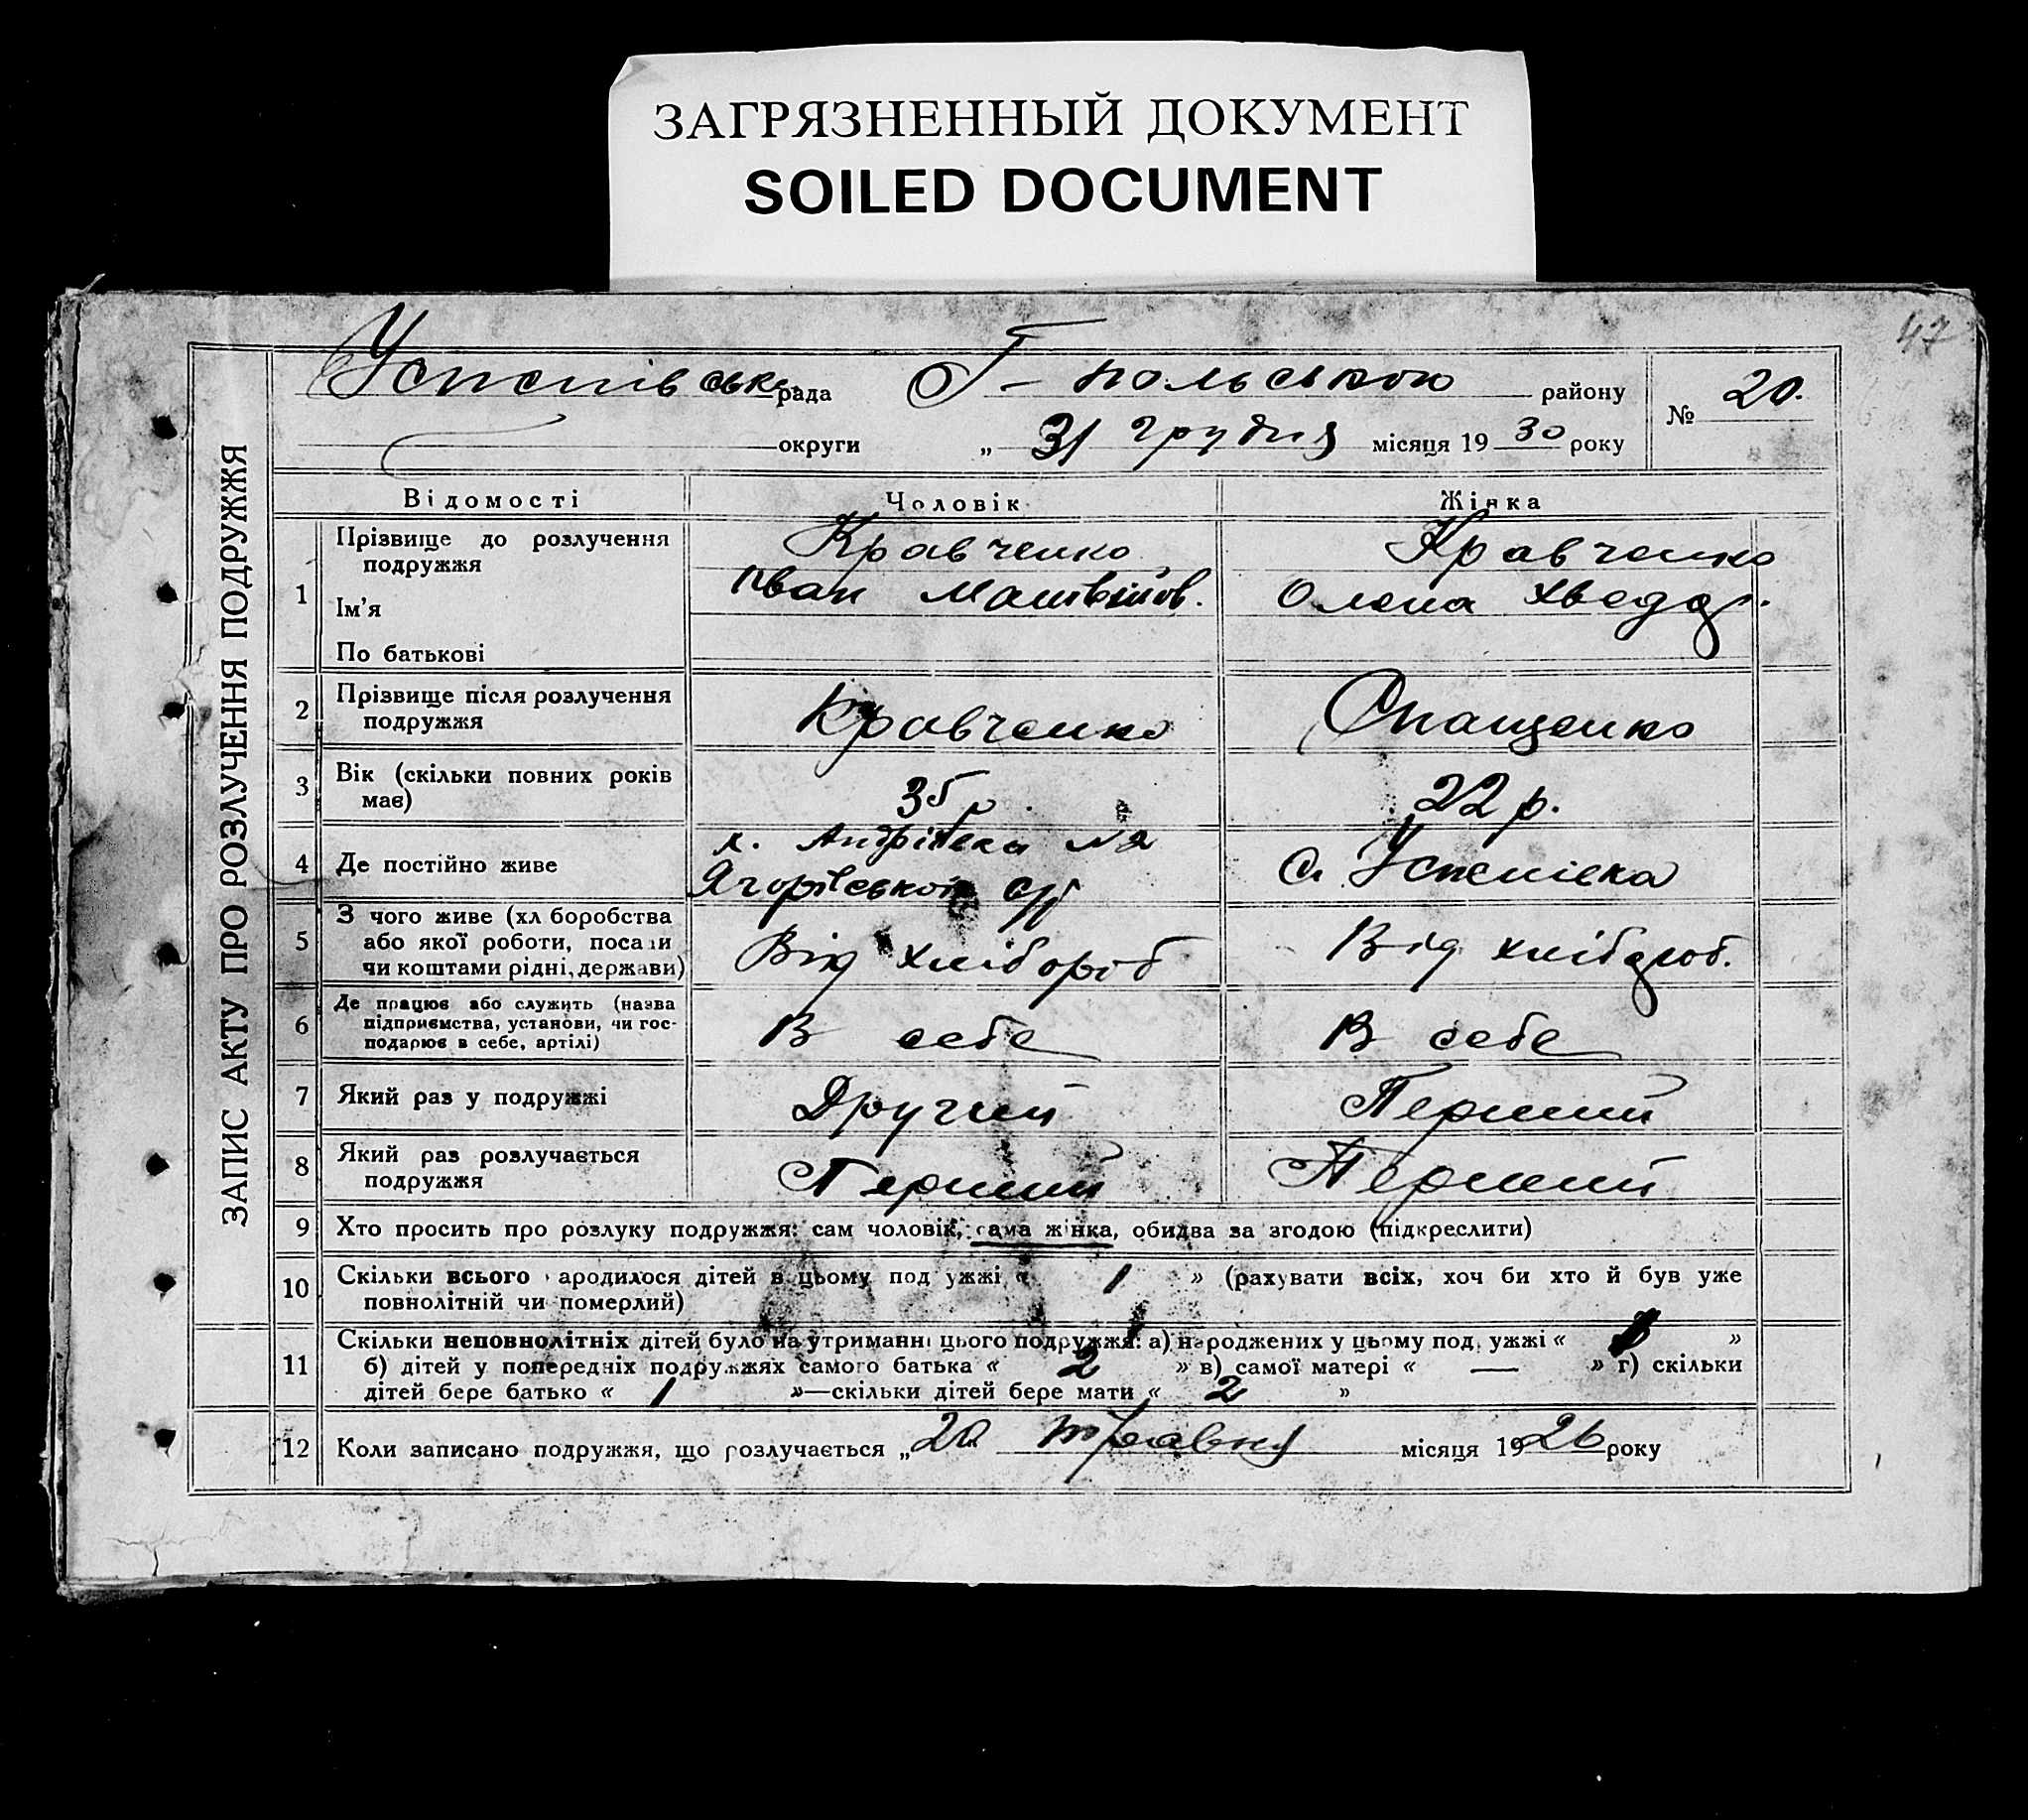 ЗАГРЯЗНЕННЫЙ ДОКУМЕНТ
SOILED DOCUMENT
47
ЗАПИС АКТУ ПРО РОЗЛУЧЕННЯ ПОДРУЖЖЯ
Успенівська рада Г-польського району № 20.
округи „ 31 грудня місяця 19 30 року
Відомості Чоловік Жінка
1 Прізвище до розлучення подружжя Кравченко Кравченко
Ім'я Іван Матвійов. Олена Хведор.
По батькові
2 Прізвище після розлучення подружжя Кравченко Опащенко
3 Вік (скільки повних років має) 35 р. 22 р.
4 Де постійно живе х. Андрієвка №2 Ягорівської с/р С. Успенівка
5 З чого живе (хліборобства або якої роботи, посади чи коштами рідні, держави) Від хлібороб Від хлібороб.
6 Де працює або служить (назва підприємства, установи, чи господарює в себе, артілі) В себе В себе
7 Який раз у подружжі Другий Перший
8 Який раз розлучається подружжя Перший Перший
9 Хто просить про розлуку подружжя: сам чоловік, сама жінка, обидва за згодою (підкреслити)
10 Скільки всього народилося дітей в цьому подружжі « 1 » (рахувати всіх, хоч би хто й був уже
повнолітній чи померлий)
11 Скільки неповнолітніх дітей було на утриманні цього подружжя: а) народжених у цьому подружжі « »
б) дітей у попередніх подружжях самого батька « 2 » в) самої матері « — » г) скільки
дітей бере батько « 1 »—скільки дітей бере мати « 2 »
12 Коли записано подружжя, що розлучається „ 20 травня місяця 1926 року